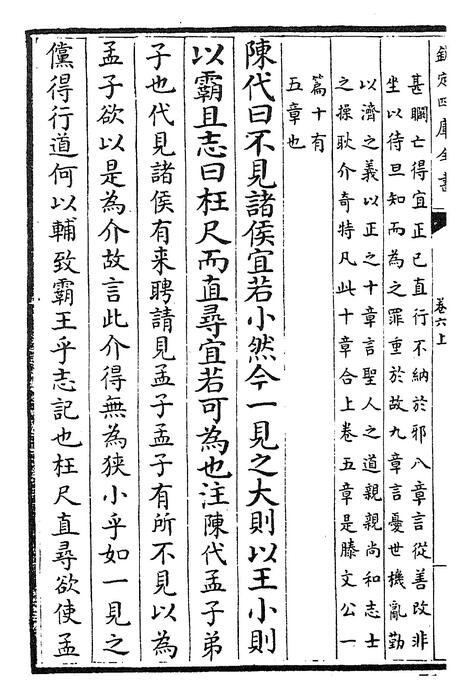 欽定四庫全書
卷六上
甚矙亡得宜正已直行不納於邪八章言從善改非
坐以待旦知而為之罪重於故九章言憂世機亂勤
以濟之義以正之十章言聖人之道親親尚和志士
之操耿介奇特凡此十章合上卷五章是滕文公一
篇十有
五章也
陳代曰不見諸侯宜若小然今一見之大則以王小則
以霸且志曰枉尺而直尋宜若可為也注陳代孟子弟
子也代見諸侯有来聘請見孟子孟子有所不見以為
孟子欲以是為介故言此介得無為狹小乎如一見之
儻得行道何以輔致霸王乎志記也枉尺直尋欲使孟